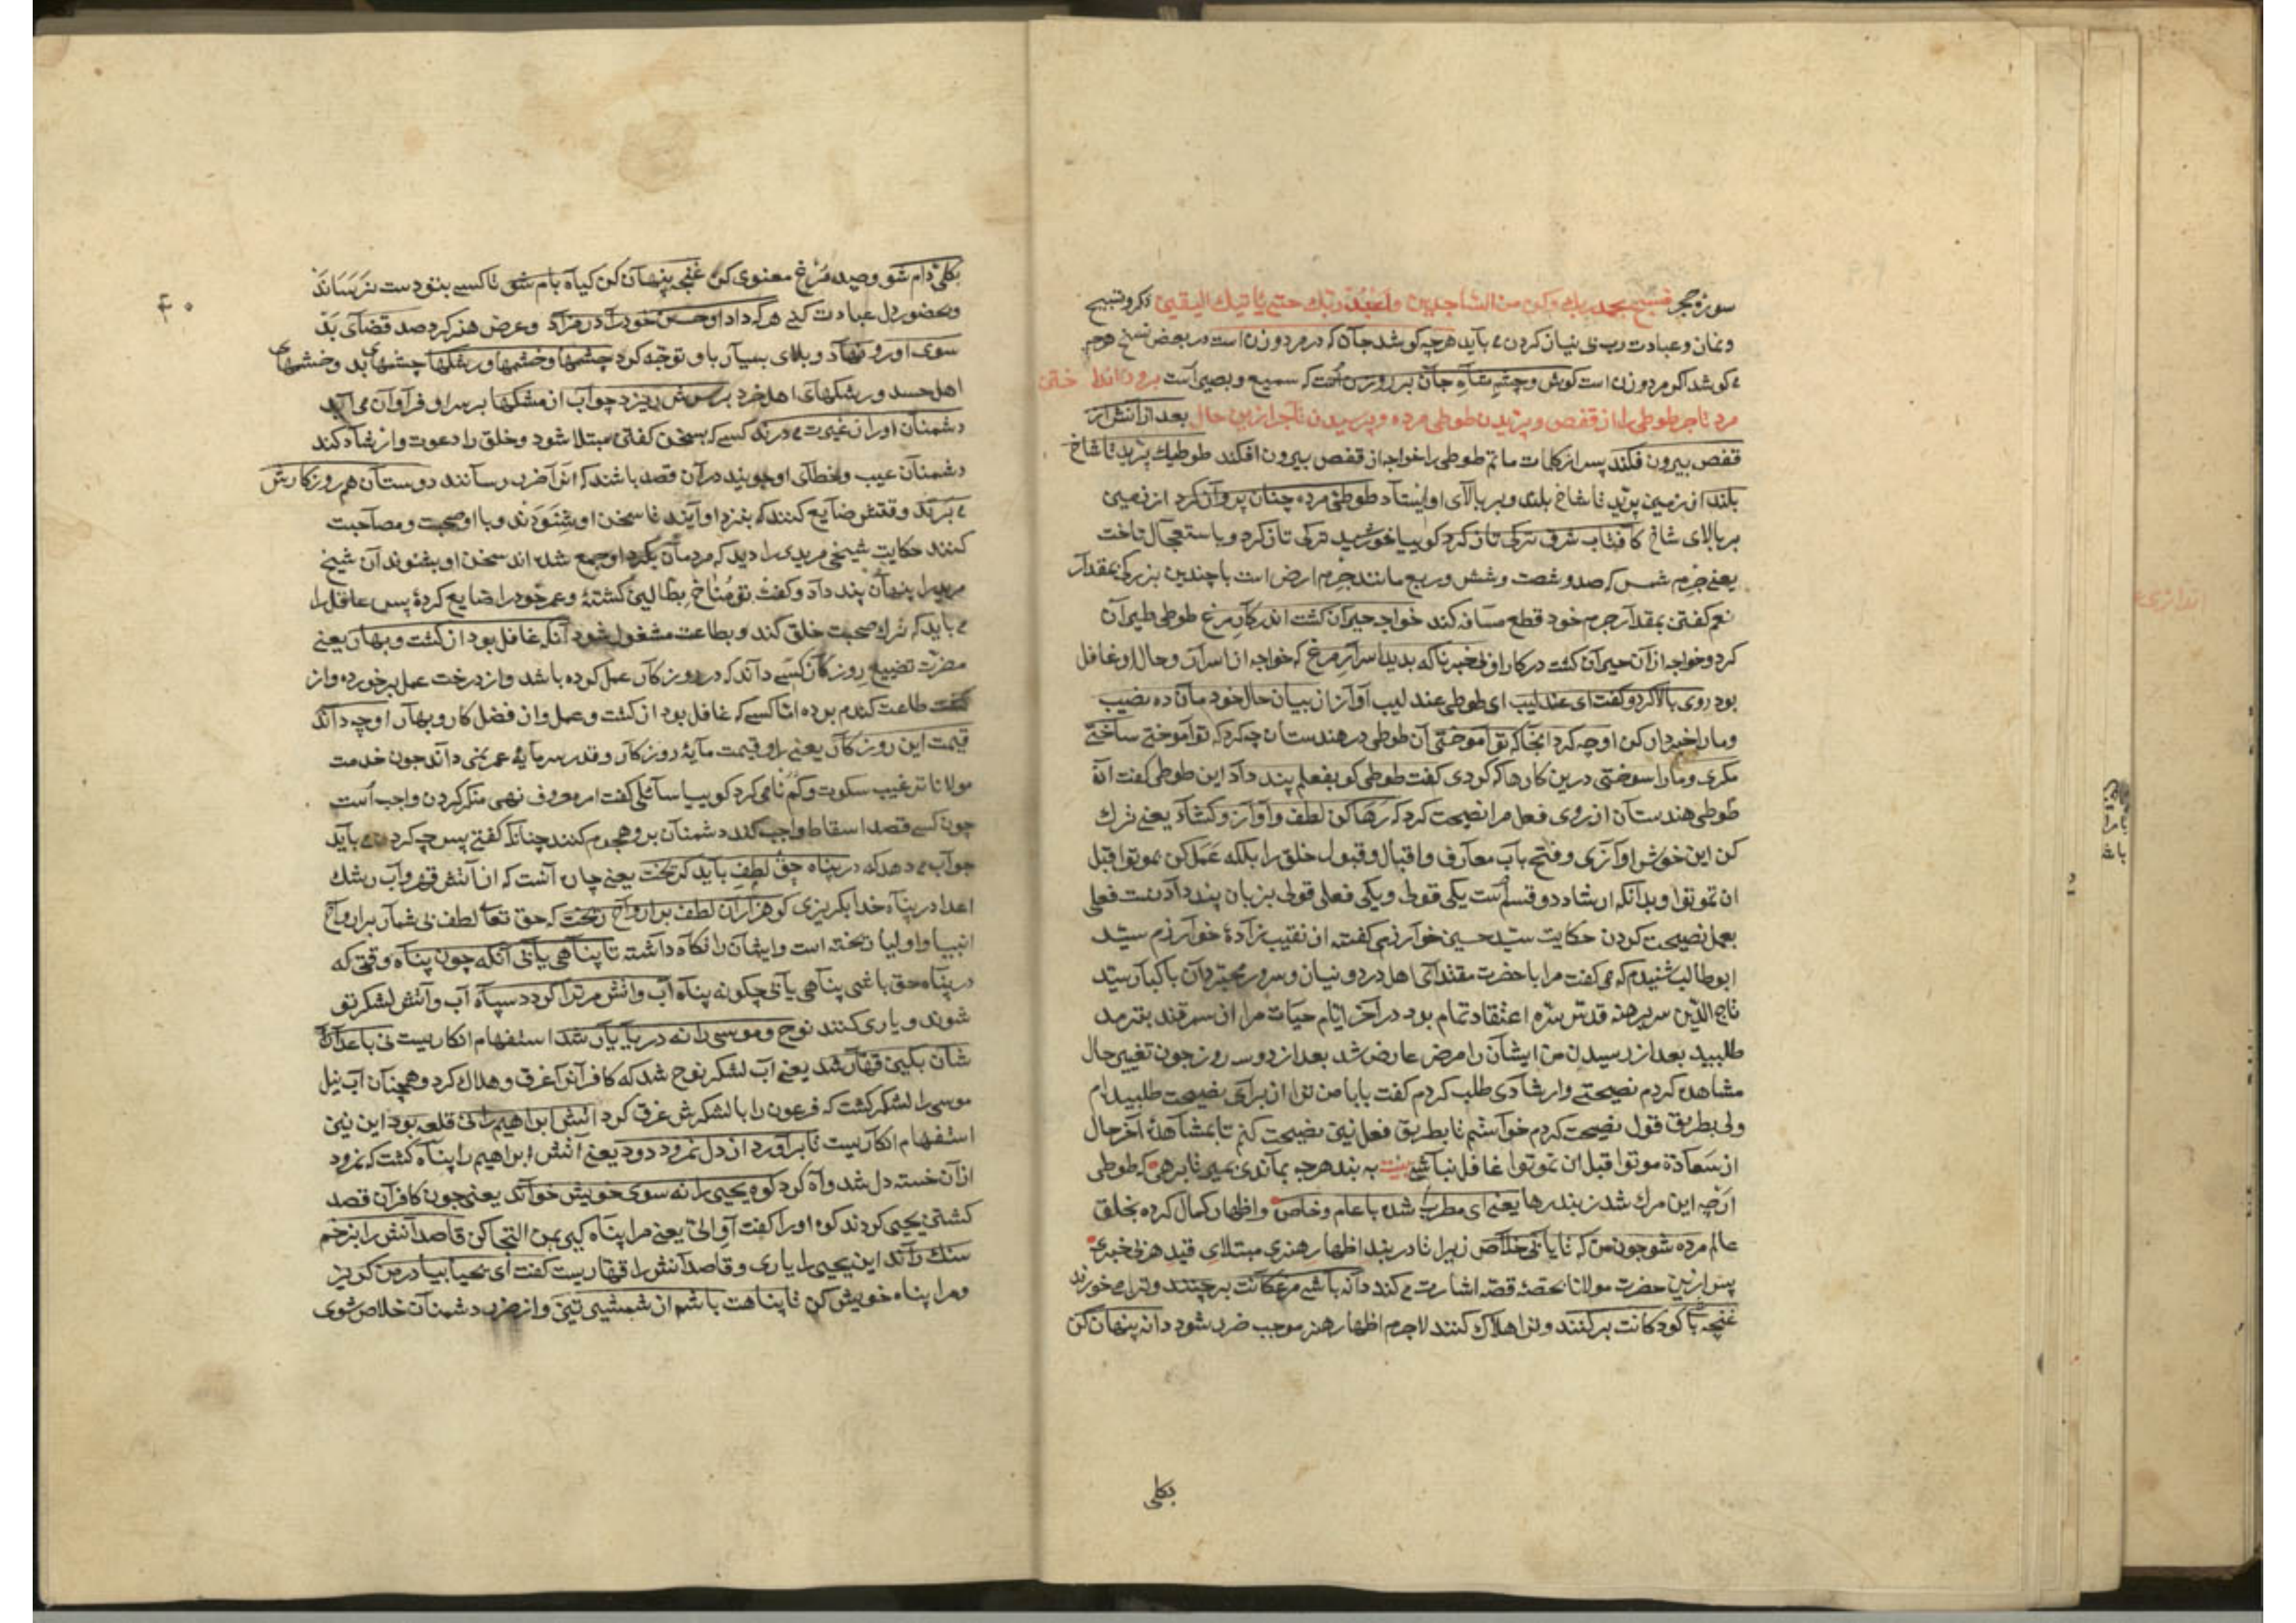 سوره حجر فسبح بحمد ربك وكن من الساجدين واعبد ربك حتى ياتيك اليقين ذكر و تسبيح
و نماز و عبادت رب بی نیاز کردن می باید هرچه کوشد جان که در مرد و زن است در بعض نسخ هرچه
می کوشد اکر مرد و زن است کوش و چشم شاه جان بر روزن است که سمیع و بصیر است برون انداختن
مرد تاجر طوطی را از قفص و پریدن طوطی مرده و پرسیدن تاجر ازین حال بعد از انش از
قفص بیرون فکند پس از کلمات ماتم طوطی را خواجه از قفص بیرون افکند طوطیك پرید تا شاخ
بلند از زمین پرید تا شاخ بلند و بر بالای او ایستاد طوطی مرده چنان پرواز کرد از زمین
بر بالای شاخ کافتاب شرق ترکی تاز کرد کوییا خورشید ترکی تاز کرد و باستعجال تاخت
یعنی جرم شمس که صد و شصت و شش و ربع مانند جرم ارض است با چندین بزرکی بمقدار
نعم کفتن بمقدار جرم خود قطع مسافه کند خواجه حیران کشت اندر کار مرغ طوطی طیران
کرد و خواجه از آن حیران کشت در کار او بی خبر ناکه بدید اسرار مرغ که خواجه از اسرار و حال او غافل
بود روی بالا کرد و کفت ای عندلیب ای طوطی عندلیب آواز از بیان حال خود مان ده نصیب
و مارا خبردار کن او چه کرد آنجا که تو آموختی آن طوطی در هندستان چه کرد که تو آموختی ساختی
مکری و مارا سوختی درین کارها که کردی کفت طوطی کو بفعلم پند داد این طوطی کفت انه
طوطی هندستان از روی فعل مرا نصیحت کرد که رها کن لطف و آواز و کشاد یعنی ترك
کن این خوش اوازی و فتح باب معارف و اقبال و قبول خلق را بلکه عمل کن بموتوا قبل
ان تموتوا و بدانکه ارشاد دو قسم است یکی قولی و یکی فعلی قولی بزبان پند دادنست فعلی
بعمل نصیحت کردن حکایت سید حسین خوارزمی کفته از نقیب زاده خوارزم سید
ابو طالب شنیدم که می کفت مرا با حضرت مقتدای اهل در دو نیان و سرور مجتهدان باکبار سید
تاج الدین سر برهنه قدس سره اعتقاد تمام بود در آخر ایام حیات مرا از سمرقند بترمد
طلبید بعد از رسیدن من ایشان را مرض عارض شد بعد از دو سه روز چون تغییر حال
مشاهده کردم نصیحتی و ارشادی طلب کردم کفت بابا من ترا از برای نصیحت طلبیده ام
ولی بطریق قول نصیحت کردم خواستم تا بطریق فعل نیز نصیحت کنم تا بمشاهده آخر حال
از سعادة موتوا قبل ان تموتوا غافل نباشی به بند هرچه بماندی بمیر تا برهی که طوطی
ارچه این مرك شد ز بند رها یعنی ای مطرب شده با عام و خاص و اظهار کمال کرده بخلق
عالم مرده شو چون من که تا یابی خلاص زیرا تا در بند اظهار هنری مبتلای قید هر بی خبری
پس ازین حضرت مولانا بحصه قصه اشارت می کند دانه باشی مرغکانت برچنند و ترا می خورند
غنچه باشی کودکانت برکنند و ترا هلاك کنند لاجرم اظهار هنر موجب ضرر شود دانه پنهان کن
بکلی
۴۰
بکلی دام شو و صید مرغ معنوی کن غنچه پنهان کن کیاه بام شو تا کسی بتو دست نرساند
و بحضور دل عبادت کنی هر که داد او حسن خود را در مزاد و عرض هنر کرد صد قضای بد
سوی او رو نهاد و بلای بسیار باو توجه کرد چشمها و خشمها و رشکها چشمهای بد و خشمهای
اهل حسد و رشکهای اهل خرد بر سرش ریزد چو آب از مشکها بر سر او فراوان می آید
دشمنان او را ز غیرت می درند کسی که بسخن کفتن مبتلا شود و خلق را دعوت و ارشاد کند
دشمنان عیب و خطای او جویند در آن قصد باشند که انرا ضرر رسانند دوستان هم روزکارش
می برند وقتش ضایع کنند که بنزد او آیند تا سخن او شنوند و با او صحبت و مصاحبت
کنند حکایت شیخی مریدی را دید که مردمان بکرد او جمع شده اند سخن او بشنوند آن شیخ
مرید را پنهان پند داد و کفت تو مناخ بطالین کشته و عمر خود را ضایع کرده پس عاقل را
می باید که ترك صحبت خلق کند و بطاعت مشغول شود آنکه غافل بود از کشت و بهار یعنی
مضرت تضییع روزکار کسی داند که در روزکار عمل کرده باشد و از درخت عمل بر خورده و از
کشت طاعت کندم بوده اما کسی که غافل بود از کشت و عمل و از فضل کار و بهار او چه داند
قیمت این روزکار یعنی او قیمت مایه روزکار و قدر سرمایه عمر نمی داند چون خدمت
مولانا ترغیب سکوت و کم نامی کرد کوییا سائلی کفت امر معروف نهی منکر کردن واجب است
چون کسی قصد اسقاط واجب کند دشمنان برو هجوم کنند چنانکه کفتی پس چه کردن می باید
جواب می دهد که در پناه حق لطف باید کریخت یعنی چاره آنست که از آتش قهر و آب رشك
اعدا در پناه خدا بکریزی کو هزاران لطف بر ارواح ریخت که حق تعالی لطف بی شمار بر ارواح
انبیا و اولیا ریخته است و ایشان را نکاه داشته تا پناهی یابی آنکه چون پناه وقتی که
در پناه حق باشی پناهی یابی چکونه پناه آب و اتش مر ترا کردد سپاه آب و آتش لشکر تو
شوند و یاری کنند نوح و موسی را نه دریا یار شد استفهام انکاریست نی باعداء
شان بکین قهار شد یعنی آب لشکر نوح شد که کافرانرا غرق و هلاك کرد و همچنان آب نیل
موسی را لشکر کشت که فرعون را با لشکرش غرق کرد اتش ابراهیم را نی قلعه بود این نیز
استفهام انکاریست تا برآورد از دل نمرود دود یعنی آتش ابراهیم را پناه کشت که نمرود
از آن خسته دل شد و آه کرد کوه یحیی را نه سوی خویش خواند یعنی چون کافران قصد
کشتن یحیی کردند کوه او را کفت آو الی یعنی مرا پناه کیر بمن التجا کن قاصدانش را بزخم
سنك راند این یحیی را یاری و قاصدانش را قهاریست کفت ای یحیی بیا در من کریز
و مرا پناه خویش کن تا پناهت باشم از شمشیر تیز و از ضرر دشمنان خلاص شوی